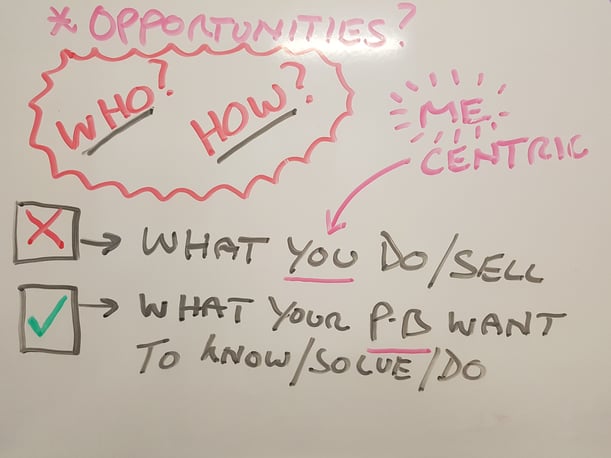 * OPPORTUNITIES?
WHO?
HOW?
ME
CENTRIC
WHAT YOU DO/SELL
WHAT YOUR P-B WANT
TO KNOW/SOLVE/DO